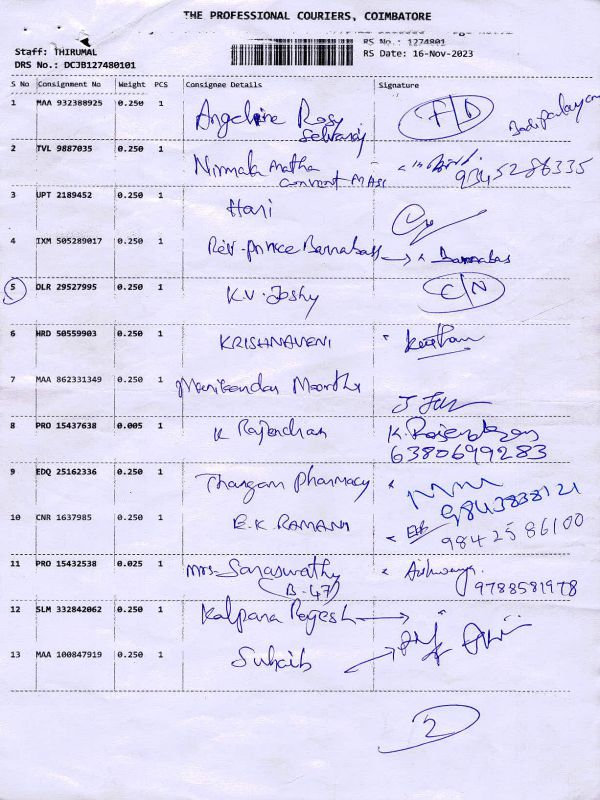 THE PROFESSIONAL COURIERS, COIMBATORE
Staff: THIRUMAL
RS No.: 1274801
DRS No.: DCJB127480101
RS Date: 16-Nov-2023
S No Consignment No Weight PCS Consignee Details Signature
1 MAA 932388925 0.250 1 Angeline Rosy F/D
Selvaraj
2 TVL 9887035 0.250 1 Nirmala Matha
convent MASI 9345286335
3 UPT 2189452 0.250 1 Hari
4 IXM 505289017 0.250 1 Rev. Prince Barnabass Barnabas
5 DLR 29527995 0.250 1 K.V. Joshy C/N
6 HRD 50559903 0.250 1 KRISHNAVENI
7 MAA 862331349 0.250 1 Manikandan Moorthi
8 PRO 15437638 0.005 1 K Rajendran K. Rajendran
6380699283
9 EDQ 25162336 0.250 1 Thangam Pharmacy 9843838121
10 CNR 1637985 0.250 1 E.K. RAMANI 9842586100
11 PRO 15432538 0.025 1 Mrs. Saraswathy Aishwarya
(B-47) 9788581978
12 SLM 332842062 0.250 1 Kalpana Rogesh
13 MAA 100847919 0.250 1 Suhaib
2